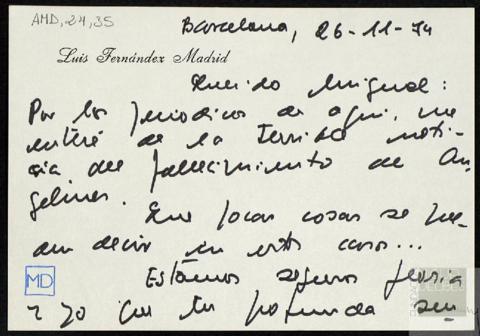 AMD, 24, 35
Barcelona, 26-11-74
Luis Fernández Madrid
Querido Miguel:
Por los periodicos de aqui, me
enteré de la terrible noti-
cia del fallecimiento de An
gelines.
Que pocas cosas se pue
den decir en estos casos...
Estamos seguros
y yo que tu profunda
MD